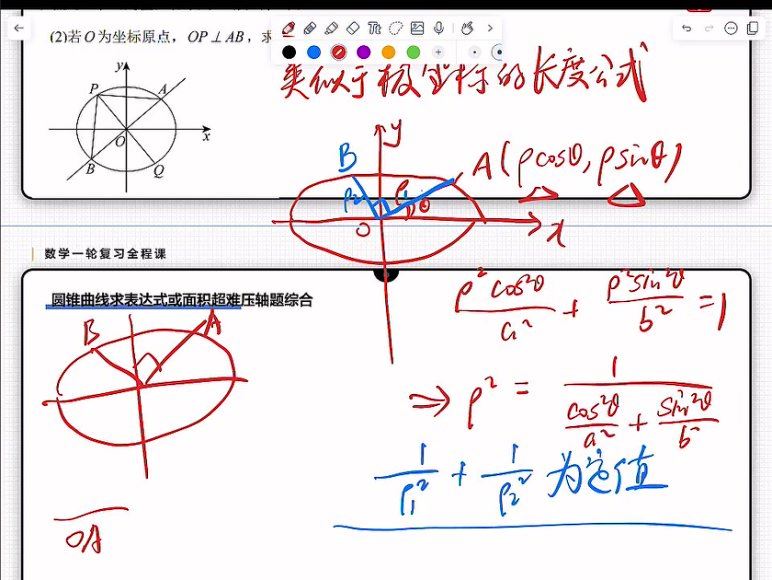 (2)若O为坐标原点，OP⊥AB，求
类似于极坐标的长度公式
y P A O x B Q
y B A(ρcosθ, ρsinθ)
ρ₂ ρ₁ θ
O x
数学一轮复习全程课
圆锥曲线求表达式或面积超难压轴题综合
B A
ρ²cos²θ/a² + ρ²sin²θ/b² = 1
⇒ ρ² = 1/(cos²θ/a² + sin²θ/b²)
1/ρ₁² + 1/ρ₂² 为定值
OA